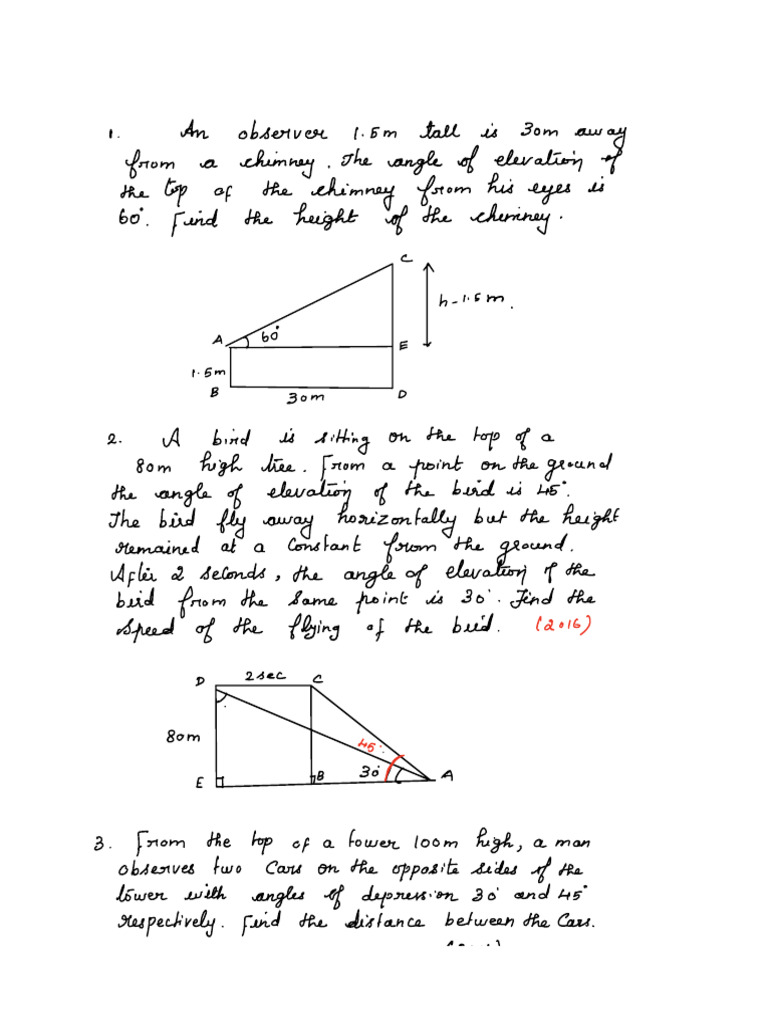 1. An observer 1.5m tall is 30m away
from a chimney. The angle of elevation of
the top of the chimney from his eyes is
60°. Find the height of the chimney.
C
h-1.5m.
A 60°
E
1.5m
B 30m D
2. A bird is sitting on the top of a
80m high tree. From a point on the ground
the angle of elevation of the bird is 45°.
The bird fly away horizontally but the height
remained at a constant from the ground.
After 2 seconds, the angle of elevation of the
bird from the same point is 30°. Find the
speed of the flying of the bird. (2016)
D 2sec C
80m
45°
E B 30° A
3. From the top of a tower 100m high, a man
observes two Cars on the opposite sides of the
tower with angles of depression 30° and 45°
respectively. Find the distance between the Cars.